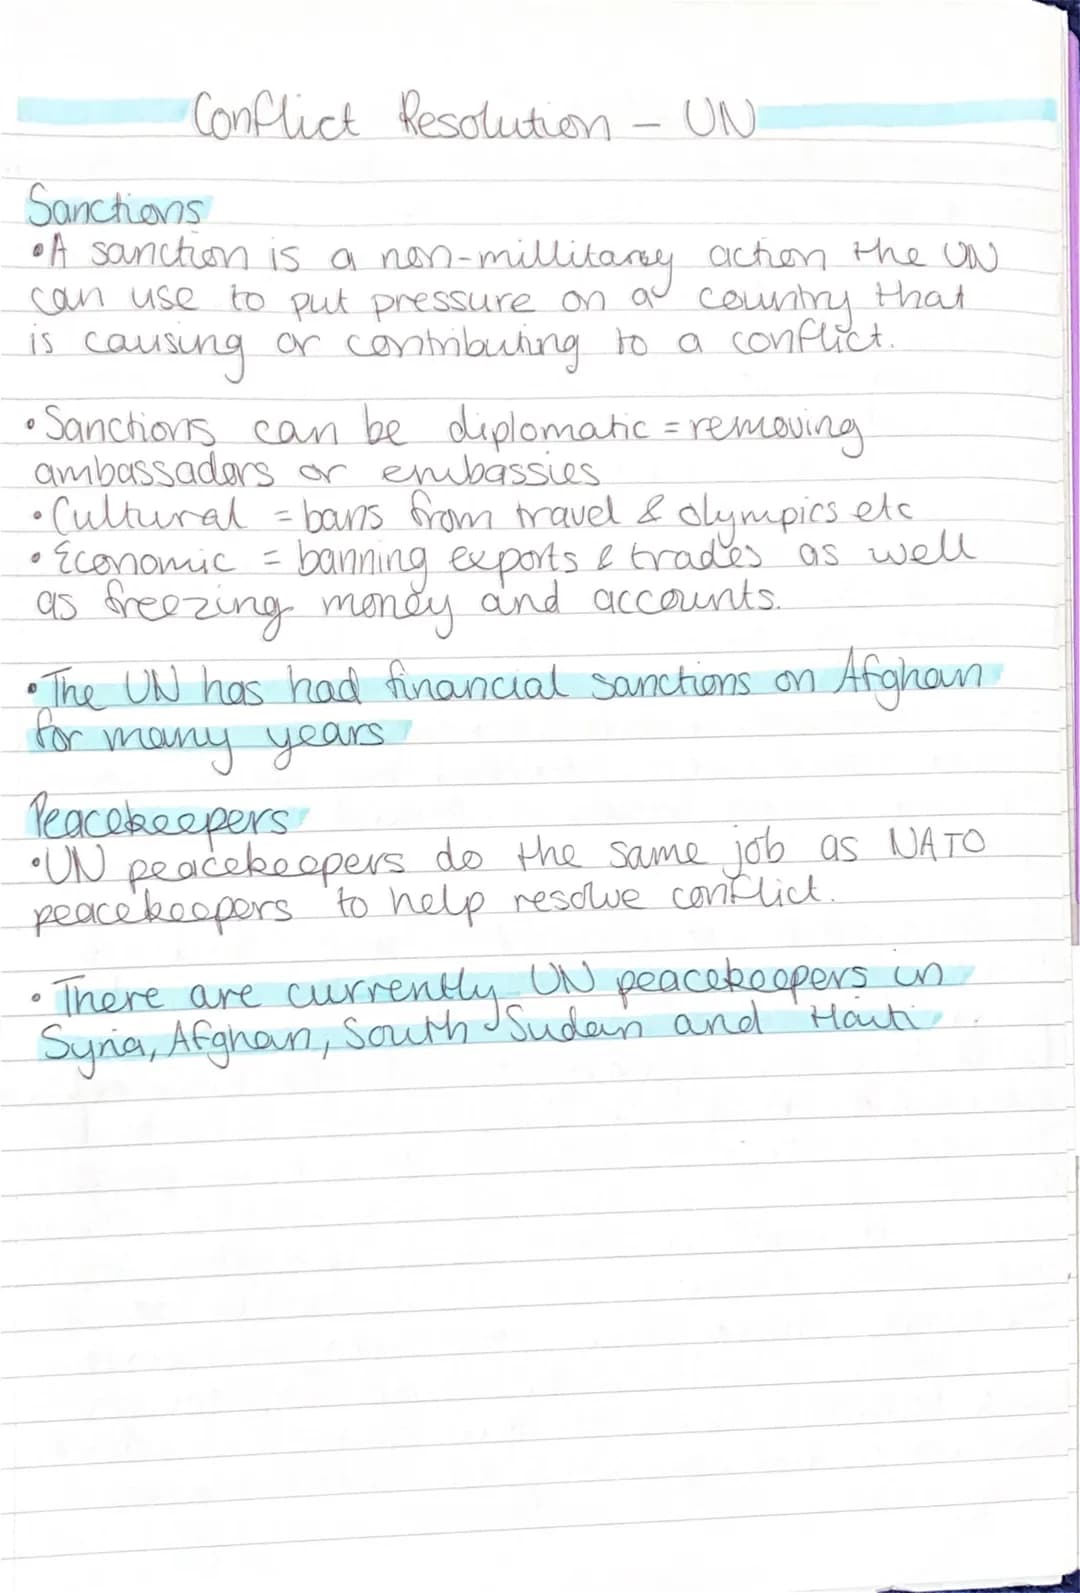 Conflict Resolution - UN
Sanctions
•A sanction is a non-millitary action the UN
can use to put pressure on a country that
is causing or contributing to a conflict.
•Sanctions can be diplomatic = removing
ambassadors or embassies
•Cultural = bans from travel & olympics etc
•Economic = banning exports & trades as well
as freezing money and accounts.
•The UN has had financial sanctions on Afghan
for many years
Peacekeepers
•UN peacekeepers do the same job as NATO
peacekeepers to help resolve conflict.
•There are currently UN peacekeepers in
Syria, Afghan, South Sudan and Haiti